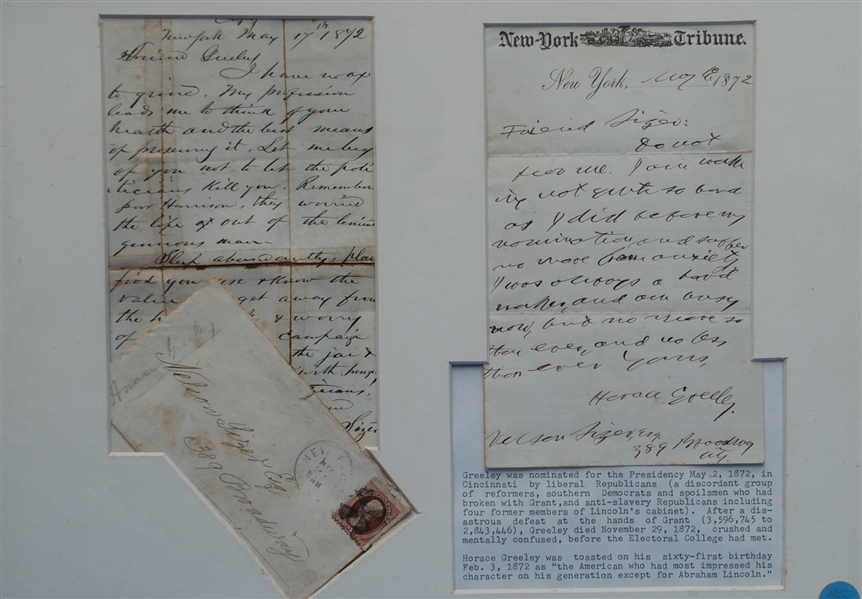 Copy
New York May 17th 1872
Friend Greeley
I have no ax
to grind. My profession
leads me to think of your
health and the best means
of preserving it. Let me beg
of you not to let the poli
ticians kill you. Remember
poor Harrison, they worried
the life out of the
generous man.
Sleep abundantly,
food you use & know the
value get away from
the & worry
of campaign
the jar &
Sizer
Nelson Sizer Esq
389 Broadway
New-York Tribune.
New York, May 1872
Friend Sizer:
Do not
fear me. I am work
ing not quite so hard
as I did before my
nomination, and suffer
no more from anxiety.
I was always a hard
worker, and am busy
now, but no more so
than ever, and no less
than ever Yours,
Horace Greeley.
Nelson Sizer Esq
389 Broadway
N.Y.
Greeley was nominated for the Presidency May 2, 1872, in
Cincinnati by liberal Republicans (a discordant group
of reformers, southern Democrats and spoilsmen who had
broken with Grant,and anti-slavery Republicans including
four former members of Lincoln's cabinet). After a dis-
astrous defeat at the hands of Grant (3,596,745 to
2,843,446), Greeley died November 29, 1872, crushed and
mentally confused, before the Electoral College had met.
Horace Greeley was toasted on his sixty-first birthday
Feb. 3, 1872 as "the American who had most impressed his
character on his generation except for Abraham Lincoln."